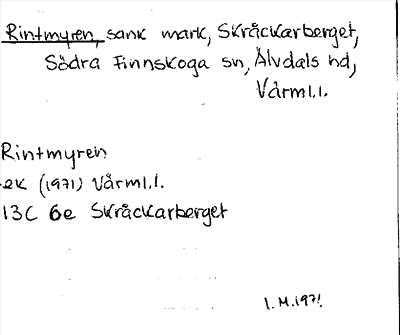 Rintmyren, sank mark, Skråckarberget,
Södra Finnskoga sn, Älvdals hd,
Värml.l.
Rintmyren
ek (1971) Värml.l.
13C 6e Skråckarberget
I.M.1971